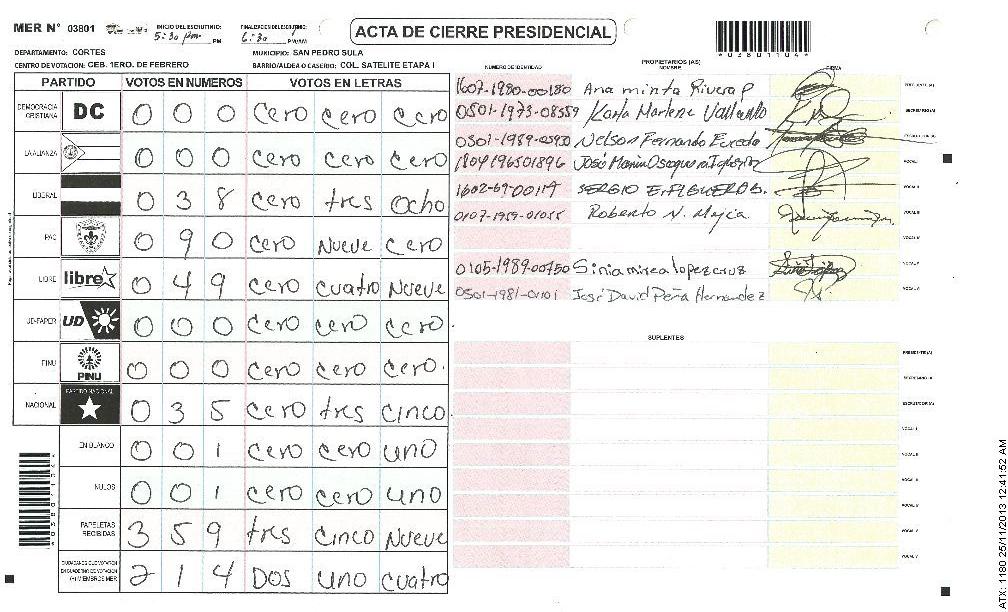 MER N° 03801 INICIO DEL ESCRUTINIO: 5:30 pm PM FINALIZACION DEL ESCRUTINIO: 6:30 PM/AM
ACTA DE CIERRE PRESIDENCIAL
DEPARTAMENTO: CORTES MUNICIPIO: SAN PEDRO SULA
CENTRO DE VOTACION: CEB. 1ERO. DE FEBRERO BARRIO/ALDEA O CASERIO: COL. SATELITE ETAPA I
PARTIDO VOTOS EN NUMEROS VOTOS EN LETRAS
DEMOCRACIA CRISTIANA DC 0 0 0 cero cero cero
LA ALIANZA 0 0 0 cero cero cero
LIBERAL 0 3 8 cero tres ocho
PAC 0 9 0 cero nueve cero
LIBRE libre 0 4 9 cero cuatro nueve
UD-FAPER UD 0 0 0 cero cero cero
PINU PINU 0 0 0 cero cero cero.
NACIONAL PARTIDO NACIONAL 0 3 5 cero tres cinco
EN BLANCO 0 0 1 cero cero uno
NULOS 0 0 1 cero cero uno
PAPELETAS RECIBIDAS 3 5 9 tres cinco nueve
CIUDADANOS QUE VOTARON EN CUADERNO DE VOTACION (+) MIEMBROS MER 2 1 4 DOS uno cuatro
PROPIETARIOS (AS)
NUMERO DE IDENTIDAD NOMBRE FIRMA
1607-1980-00180 Ana minta Rivera P PRESIDENTE (A)
0501-1973-08559 Karla Marlene SECRETARIO (A)
0501-1989-05930 Nelson Fernando ESCRUTADOR (A)
1804196501896 José Maria VOCAL I
1602-69-00117 SERGIO E. FIGUEROA B. VOCAL II
0107-1959-01055 Roberto N. Mejia VOCAL III
VOCAL IV
0105-1989-00750 Sinia mirea lopez cruz VOCAL V
0501-1981-01101 José David Peña Hernandez VOCAL VI
SUPLENTES
PRESIDENTE (A)
SECRETARIO (A)
ESCRUTADOR (A)
VOCAL I
VOCAL II
VOCAL III
VOCAL IV
VOCAL V
VOCAL VI
03801104
ATX: 1180 25/11/2013 12:41:52 AM